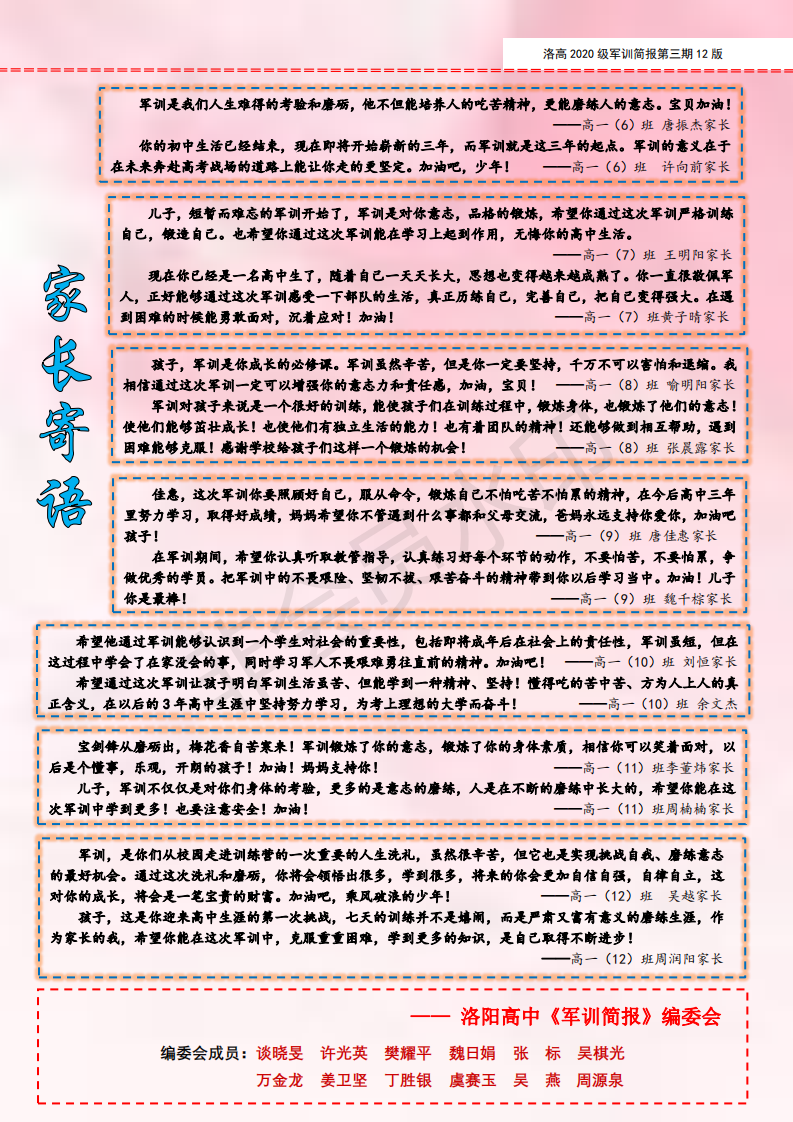 洛高 2020 级军训简报第三期 12 版
军训是我们人生难得的考验和磨砺，他不但能培养人的吃苦精神，更能磨练人的意志。宝贝加油！
——高一（6）班 唐振杰家长
你的初中生活已经结束，现在即将开始崭新的三年，而军训就是这三年的起点。军训的意义在于
在未来奔赴高考战场的道路上能让你走的更坚定。加油吧，少年！ ——高一（6）班 许向前家长
儿子，短暂而难忘的军训开始了，军训是对你意志，品格的锻炼，希望你通过这次军训严格训练
自己，锻造自己。也希望你通过这次军训能在学习上起到作用，无悔你的高中生活。
——高一（7）班 王明阳家长
现在你已经是一名高中生了，随着自己一天天长大，思想也变得越来越成熟了。你一直很敬佩军
人，正好能够通过这次军训感受一下部队的生活，真正历练自己，完善自己，把自己变得强大。在遇
到困难的时候能勇敢面对，沉着应对！加油！ ——高一（7）班黄子晴家长
家长寄语
孩子，军训是你成长的必修课。军训虽然辛苦，但是你一定要坚持，千万不可以害怕和退缩。我
相信通过这次军训一定可以增强你的意志力和责任感，加油，宝贝！ ——高一（8）班 喻明阳家长
军训对孩子来说是一个很好的训练，能使孩子们在训练过程中，锻炼身体，也锻炼了他们的意志！
使他们能够茁壮成长！也使他们有独立生活的能力！也有着团队的精神！还能够做到相互帮助，遇到
困难能够克服！感谢学校给孩子们这样一个锻炼的机会！ ——高一（8）班 张晨露家长
佳惠，这次军训你要照顾好自己，服从命令，锻炼自己不怕吃苦不怕累的精神，在今后高中三年
里努力学习，取得好成绩，妈妈希望你不管遇到什么事都和父母交流，爸妈永远支持你爱你，加油吧
孩子！ ——高一（9）班 唐佳惠家长
在军训期间，希望你认真听取教管指导，认真练习好每个环节的动作，不要怕苦，不要怕累，争
做优秀的学员。把军训中的不畏艰险、坚韧不拔、艰苦奋斗的精神带到你以后学习当中。加油！儿子
你是最棒！ ——高一（9）班 魏千棕家长
希望他通过军训能够认识到一个学生对社会的重要性，包括即将成年后在社会上的责任性，军训虽短，但在
这过程中学会了在家没会的事，同时学习军人不畏艰难勇往直前的精神。加油吧！ ——高一（10）班 刘恒家长
希望通过这次军训让孩子明白军训生活虽苦、但能学到一种精神、坚持！懂得吃的苦中苦、方为人上人的真
正含义，在以后的 3 年高中生涯中坚持努力学习，为考上理想的大学而奋斗！ ——高一（10）班 余文杰
宝剑锋从磨砺出，梅花香自苦寒来！军训锻炼了你的意志，锻炼了你的身体素质，相信你可以笑着面对，以
后是个懂事，乐观，开朗的孩子！加油！妈妈支持你！ ——高一（11）班李董炜家长
儿子，军训不仅仅是对你们身体的考验，更多的是意志的磨练，人是在不断的磨练中长大的，希望你能在这
次军训中学到更多！也要注意安全！加油！ ——高一（11）班周楠楠家长
军训，是你们从校园走进训练营的一次重要的人生洗礼，虽然很辛苦，但它也是实现挑战自我、磨练意志
的最好机会。通过这次洗礼和磨砺，你将会领悟出很多，学到很多，将来的你会更加自信自强，自律自立，这
对你的成长，将会是一笔宝贵的财富。加油吧，乘风破浪的少年！ ——高一（12）班 吴越家长
孩子，这是你迎来高中生涯的第一次挑战，七天的训练并不是嬉闹，而是严肃又富有意义的磨练生涯，作
为家长的我，希望你能在这次军训中，克服重重困难，学到更多的知识，是自己取得不断进步！
——高一（12）班周润阳家长
—— 洛阳高中《军训简报》编委会
编委会成员：谈晓旻 许光英 樊耀平 魏日娟 张 标 吴棋光
万金龙 姜卫坚 丁胜银 虞赛玉 吴 燕 周源泉
非会员水印